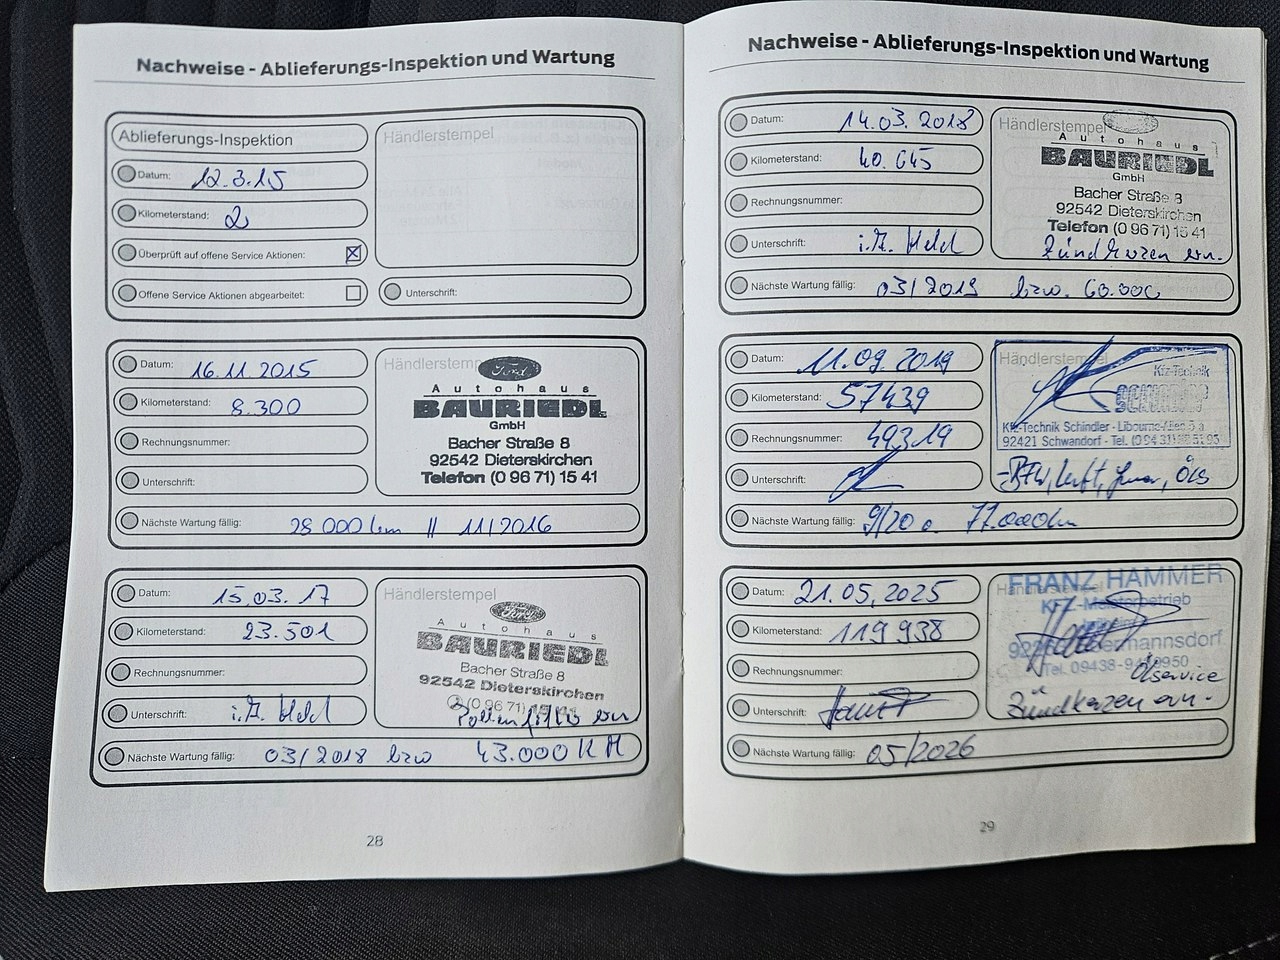 Nachweise - Ablieferungs-Inspektion und Wartung
Ablieferungs-Inspektion
Datum: 12.3.15
Kilometerstand: 2
Überprüft auf offene Service Aktionen: ☒
Offene Service Aktionen abgearbeitet: ☐
Händlerstempel
Unterschrift:
Datum: 16.11.2015
Kilometerstand: 8.300
Rechnungsnummer:
Unterschrift:
Nächste Wartung fällig: 28 000 km // 11/2016
Händlerstempel
Ford
Autohaus
BAURIEDL
GmbH
Bacher Straße 8
92542 Dieterskirchen
Telefon (0 96 71) 15 41
Datum: 15.03.17
Kilometerstand: 23.501
Rechnungsnummer:
Unterschrift: i.A. Held
Nächste Wartung fällig: 03/2018 bzw 43.000 KM
Händlerstempel
Ford
Autohaus
BAURIEDL
Bacher Straße 8
92542 Dieterskirchen
(0 96 71) 15 41
Pollenfilter ern.
28
Nachweise - Ablieferungs-Inspektion und Wartung
Datum: 14.03.2018
Kilometerstand: 40.645
Rechnungsnummer:
Unterschrift: i.A. Held
Nächste Wartung fällig: 03/2019 bzw. 60.000
Händlerstempel
Autohaus
BAURIEDL
GmbH
Bacher Straße 8
92542 Dieterskirchen
Telefon (0 96 71) 15 41
Zündkerzen ern.
Datum: 11.09.2019
Kilometerstand: 57439
Rechnungsnummer: 49319
Unterschrift:
Nächste Wartung fällig: 9/20 o. 77.000km
Händlerstempel
Kfz-Technik
Kfz-Technik Schindler - Libourne-Allee
92421 Schwandorf - Tel.
Luft, Öls
Datum: 21.05.2025
Kilometerstand: 119938
Rechnungsnummer:
Unterschrift:
Nächste Wartung fällig: 05/2026
FRANZ HAMMER
Kfz-Meisterbetrieb
Tel. 09438-
Ölservice
Zündkerzen ern.
29